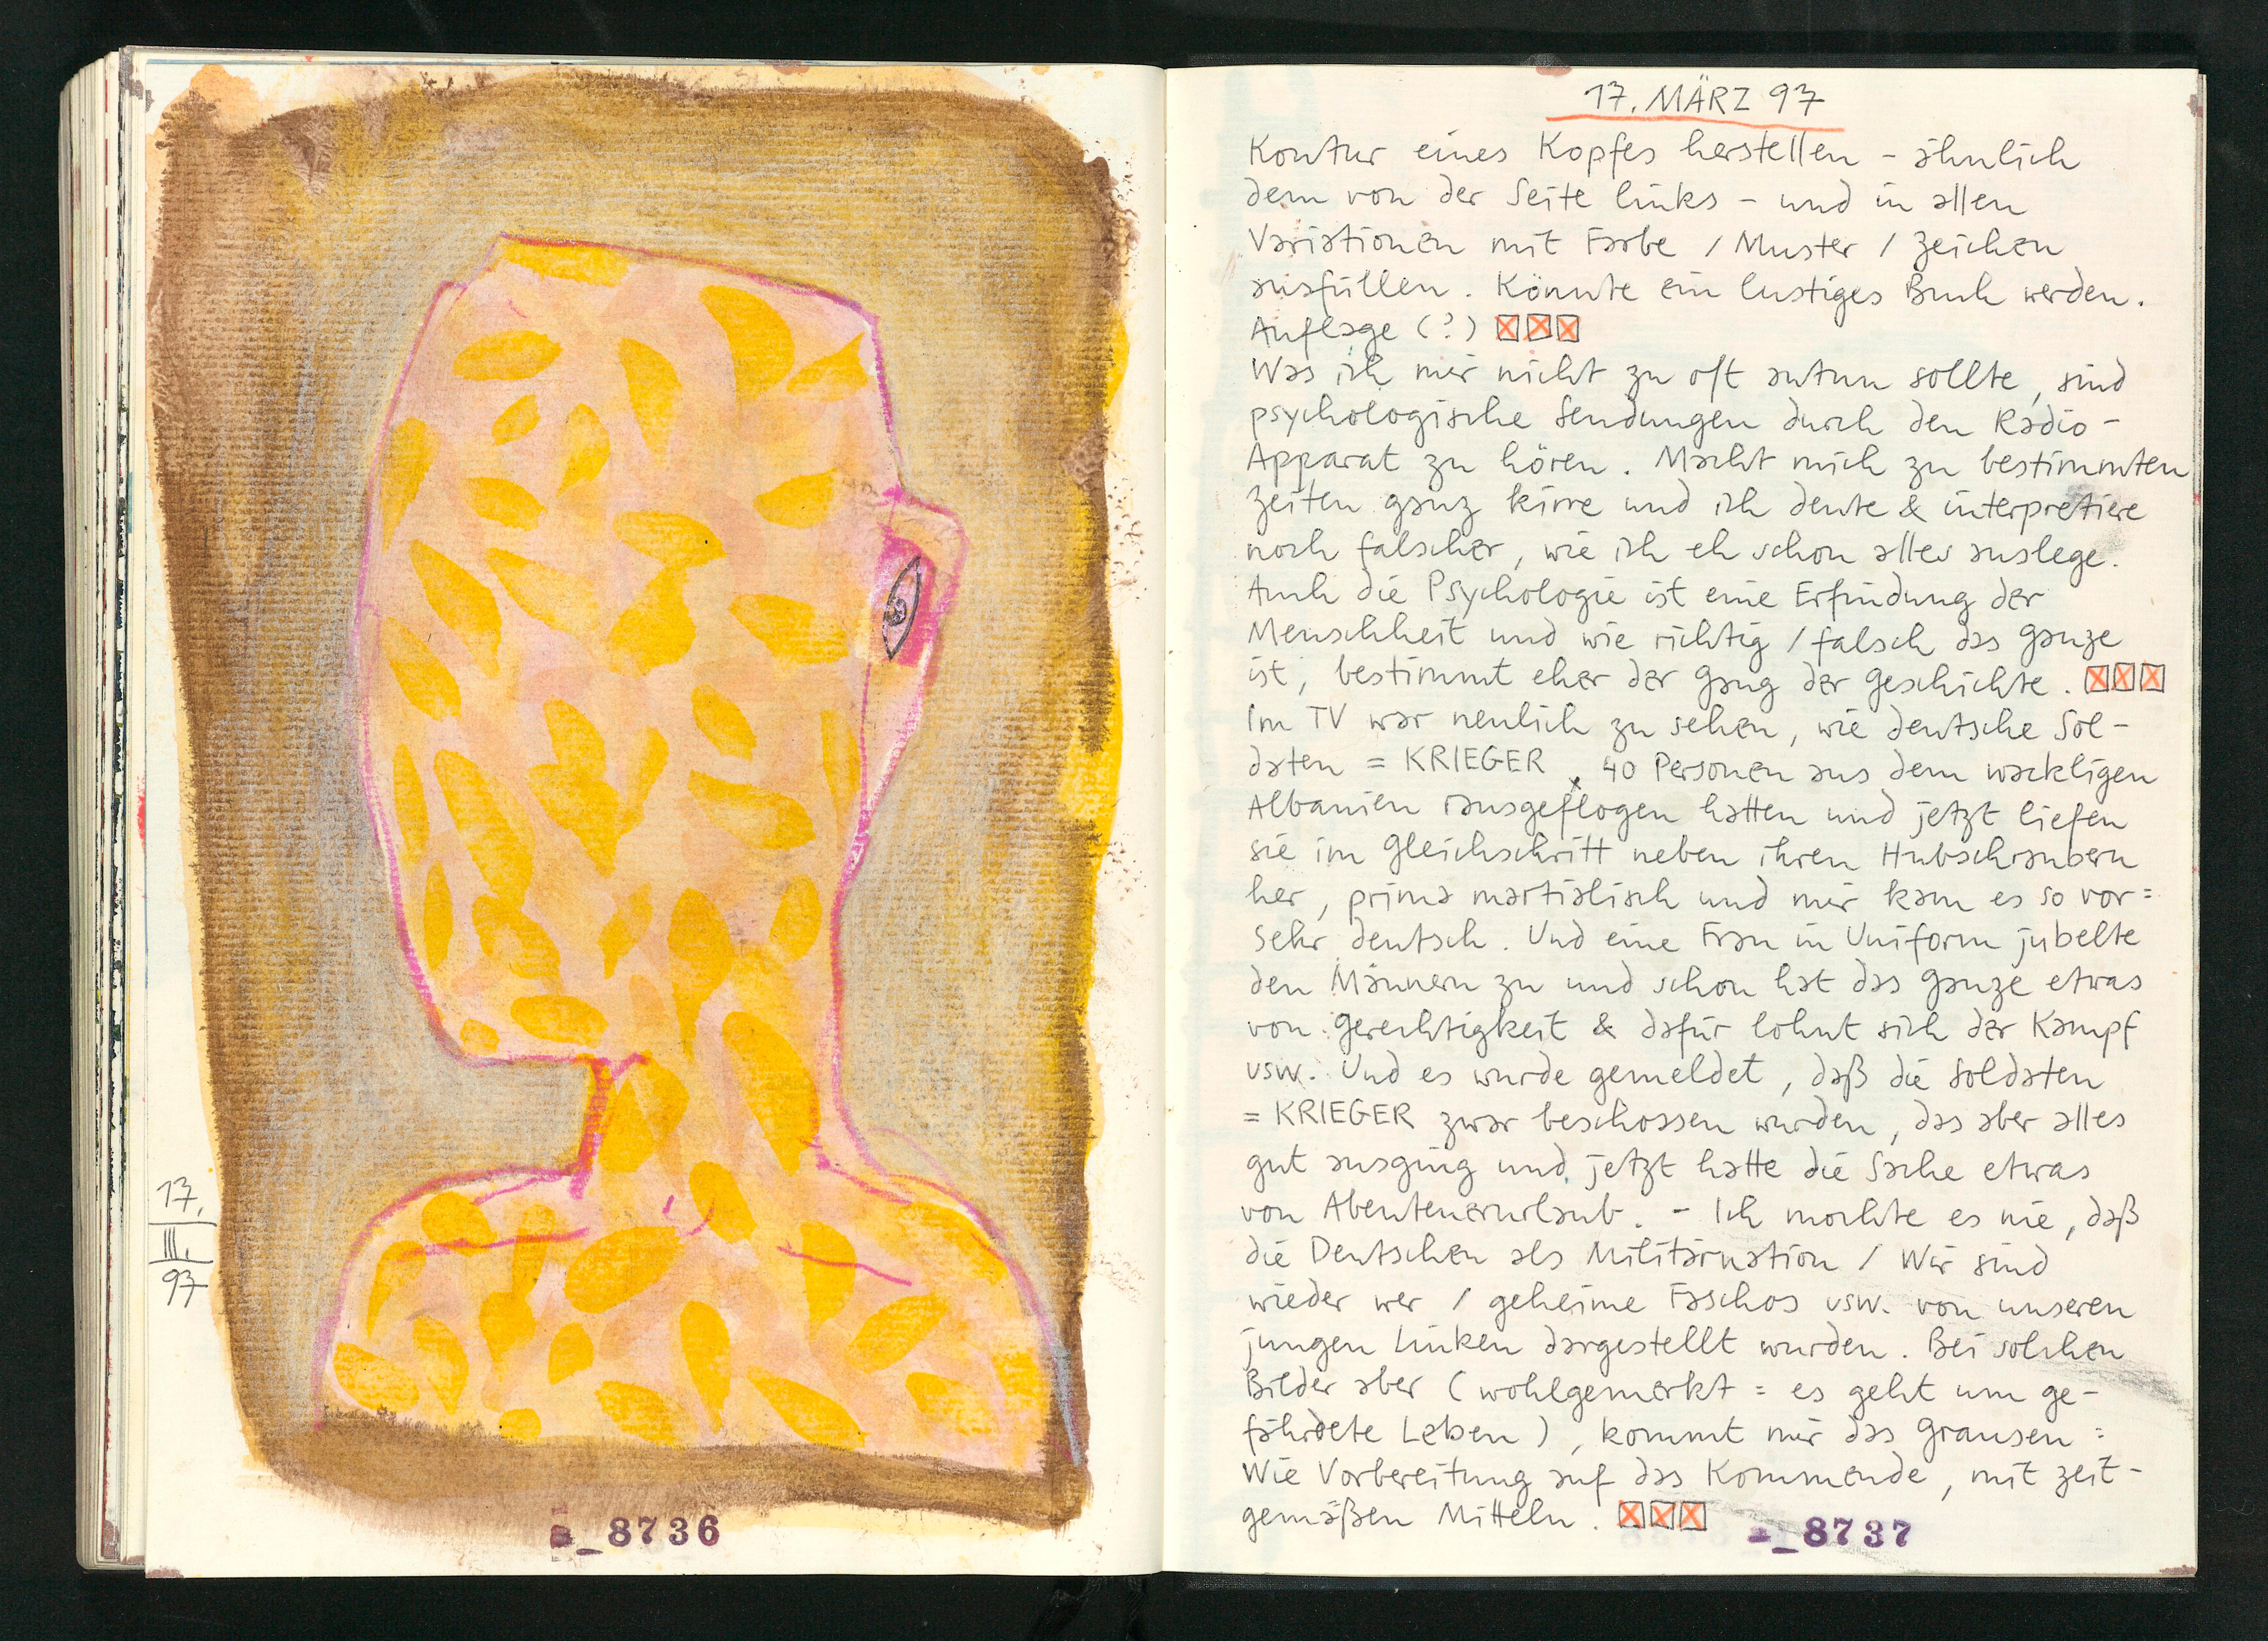 17.
III.
97
8736
17. MÄRZ 97
Kontur eines Kopfes herstellen - ähnlich
dem von der Seite links - und in allen
Variationen mit Farbe / Muster / Zeichen
ausfüllen. Könnte ein lustiges Buch werden.
Auflage (?) ☒☒☒
Was ich mir nicht zu oft antun sollte, sind
psychologische Sendungen durch den Radio-
Apparat zu hören. Macht mich zu bestimmten
Zeiten ganz kirre und ich deute & interpretiere
noch falscher, wie ich eh schon alles auslege.
Auch die Psychologie ist eine Erfindung der
Menschheit und wie richtig / falsch das ganze
ist, bestimmt eher der Gang der Geschichte. ☒☒☒
Im TV war neulich zu sehen, wie deutsche Sol-
daten = KRIEGER, 40 Personen aus dem wackligen
Albanien rausgeflogen hatten und jetzt liefen
sie im Gleichschritt neben ihren Hubschraubern
her, prima martialisch und mir kam es so vor =
sehr deutsch. Und eine Frau in Uniform jubelte
den Männern zu und schon hat das ganze etwas
von Gerechtigkeit & dafür lohnt sich der Kampf
usw. Und es wurde gemeldet, daß die Soldaten
= KRIEGER zwar beschossen wurden, das aber alles
gut ausging und jetzt hatte die Sache etwas
von Abenteuerurlaub. - Ich mochte es nie, daß
die Deutschen als Militärnation / Wir sind
wieder wer / geheime Faschos usw. von unseren
jungen Linken dargestellt wurden. Bei solchen
Bilder aber (wohlgemerkt = es geht um ge-
fährdete Leben), kommt mir das Grausen :
Wie Vorbereitung auf das Kommende, mit zeit-
gemäßen Mitteln. ☒☒☒
8737